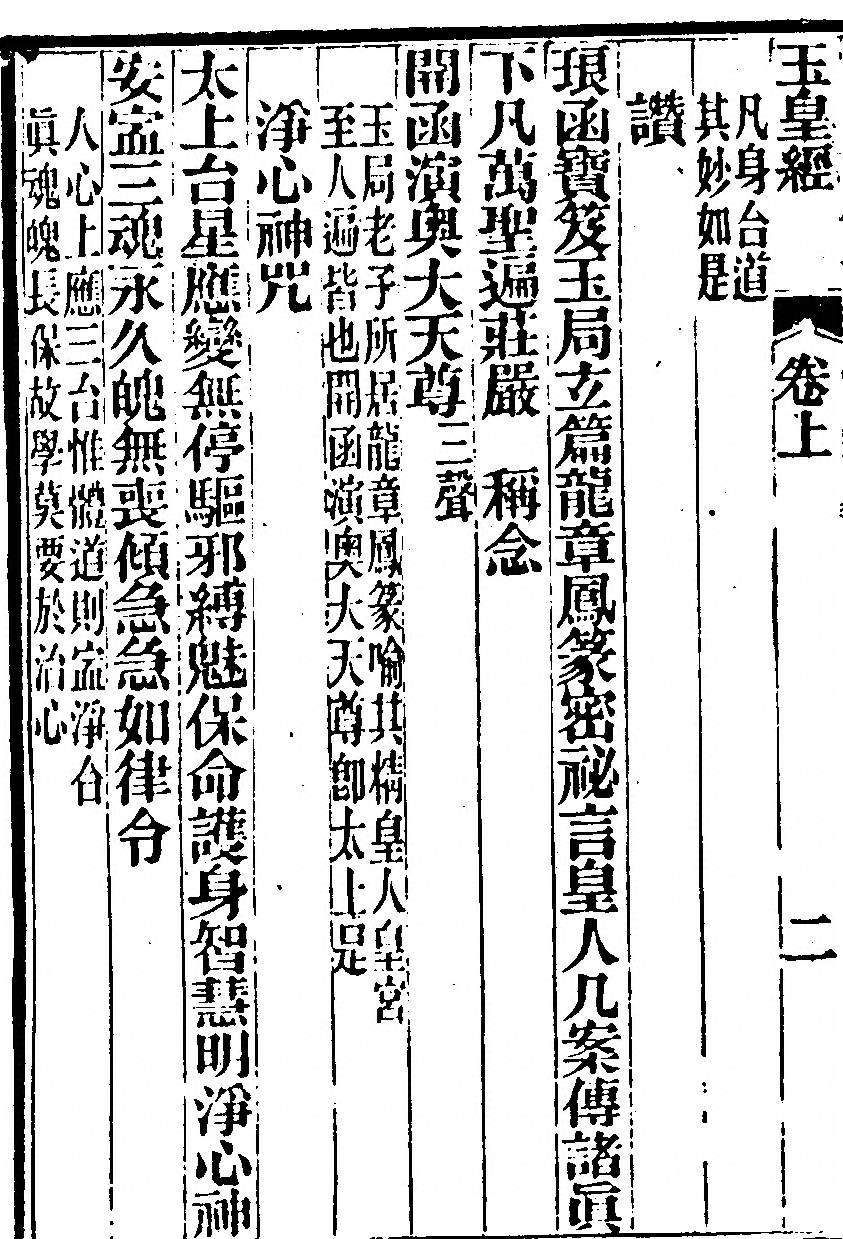 玉皇經 卷上 二
凡身台道
其妙如是
讚
琅函寶笈玉局立篇龍章鳳篆密祕言皇人几案傳諸眞
下凡萬聖遍莊嚴 稱念
開函演奧大天尊三聲
玉局老子所居龍章鳳篆喻其精皇人皇宮
至人遍皆也開函演奧大天尊卽太上是
淨心神咒
太上台星應變無停驅邪縛魅保命護身智慧明淨心神
安寍三魂永久魄無喪傾急急如律令
人心上應三台惟體道則寍淨台
眞魂魄長保故學莫要於治心